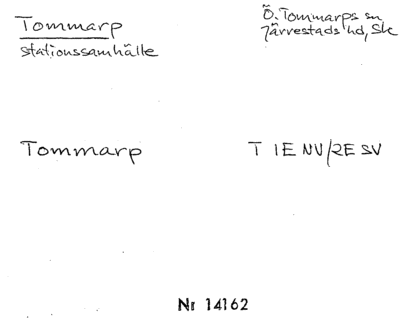 Tommarp
stationssamhälle
Ö. Tommarps sn
Järrestads hd, Sk
Tommarp
T 1E NV/2E SV
Nr 14162